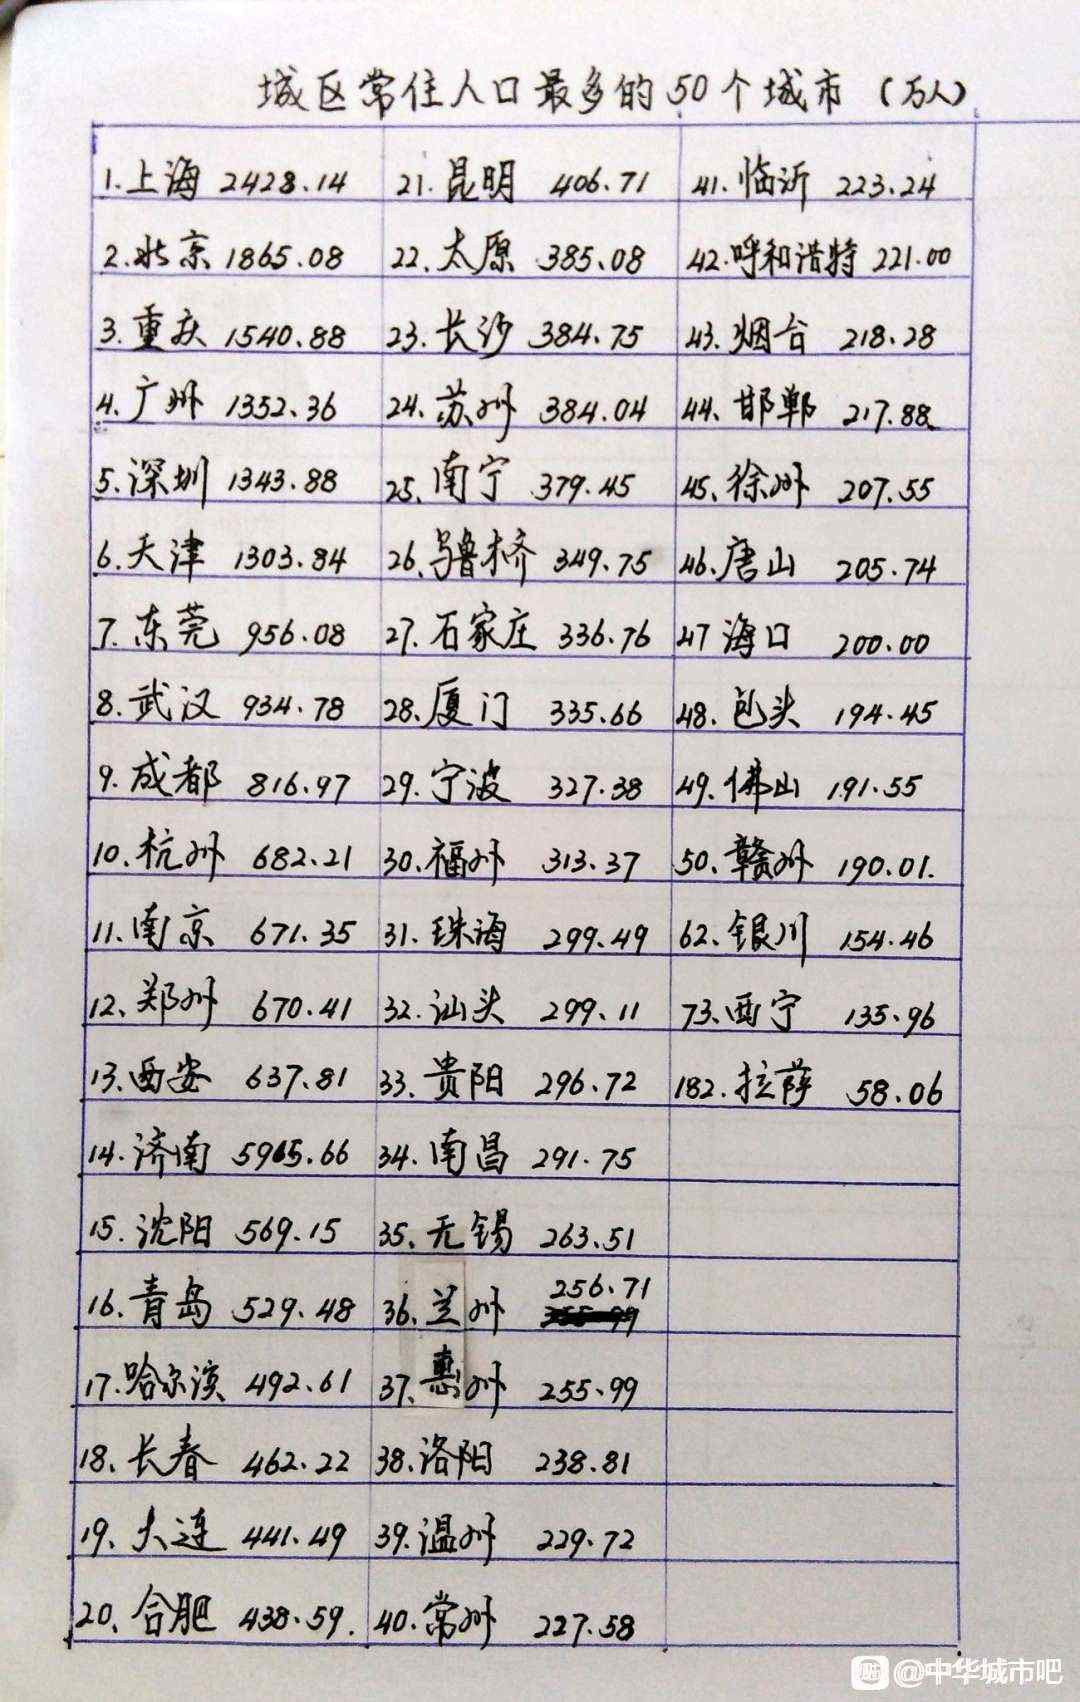 城区常住人口最多的50个城市（万人）
1.上海 2428.14
2.北京 1865.08
3.重庆 1540.88
4.广州 1352.36
5.深圳 1343.88
6.天津 1303.84
7.东莞 956.08
8.武汉 934.78
9.成都 816.97
10.杭州 682.21
11.南京 671.35
12.郑州 670.41
13.西安 637.81
14.济南 5965.66
15.沈阳 569.15
16.青岛 529.48
17.哈尔滨 492.61
18.长春 462.22
19.大连 441.49
20.合肥 438.59.
21.昆明 406.71
22.太原 385.08
23.长沙 384.75
24.苏州 384.04
25.南宁 379.45
26.乌鲁木齐 349.75
27.石家庄 336.76
28.厦门 335.66
29.宁波 327.38
30.福州 313.37
31.珠海 299.49
32.汕头 299.11
33.贵阳 296.72
34.南昌 291.75
35.无锡 263.51
36.兰州 256.71
37.惠州 255.99
38.洛阳 238.81
39.温州 229.72
40.常州 227.58
41.临沂 223.24
42.呼和浩特 221.00
43.烟台 218.28
44.邯郸 217.88
45.徐州 207.55
46.唐山 205.74
47 海口 200.00
48.包头 194.45
49.佛山 191.55
50.赣州 190.01.
62.银川 154.46
73.西宁 135.96
182.拉萨 58.06
@中华城市吧